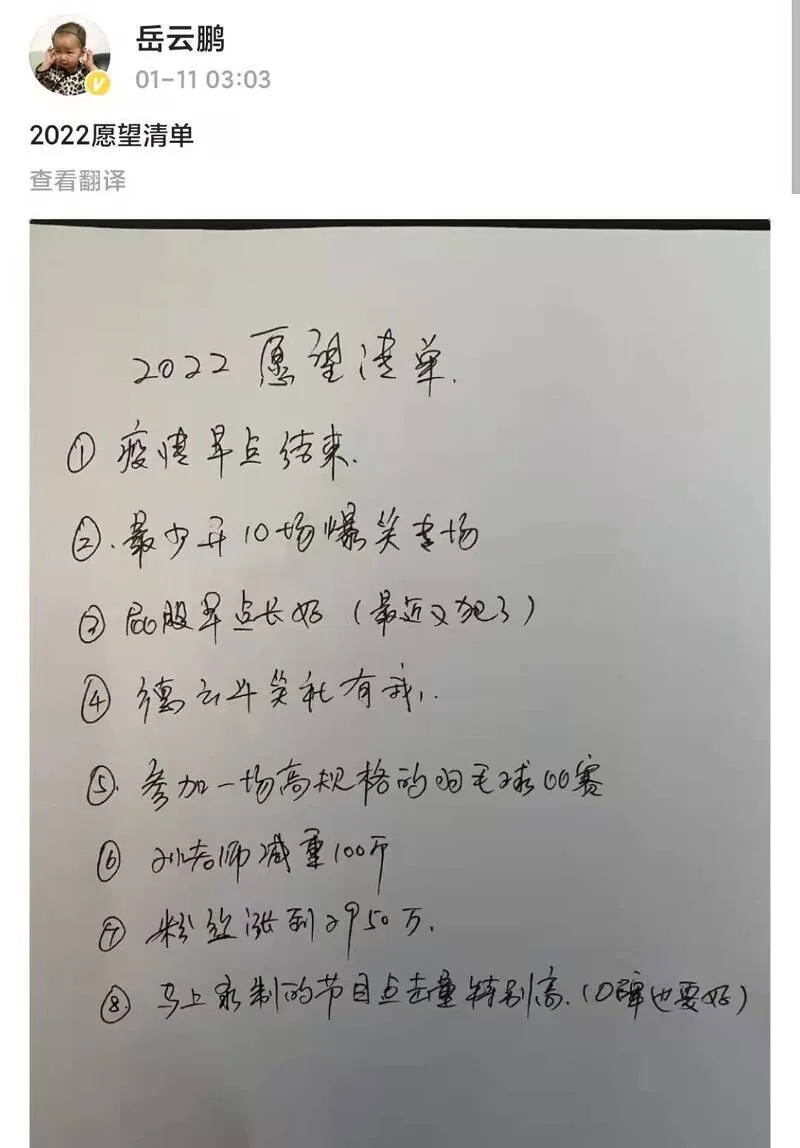 岳云鹏
01-11 03:03
2022愿望清单
查看翻译
2022愿望清单.
① 疫情早点结束.
②. 最少开10场爆笑专场
③ 屁股早点长好（最近又犯了）
④ 德云斗笑社有我,.
⑤. 参加一场高规格的羽毛球比赛
⑥ 孙老师减重100斤
⑦ 粉丝涨到2950万.
⑧. 马上录制的节目点击量特别高.（口碑也要好）